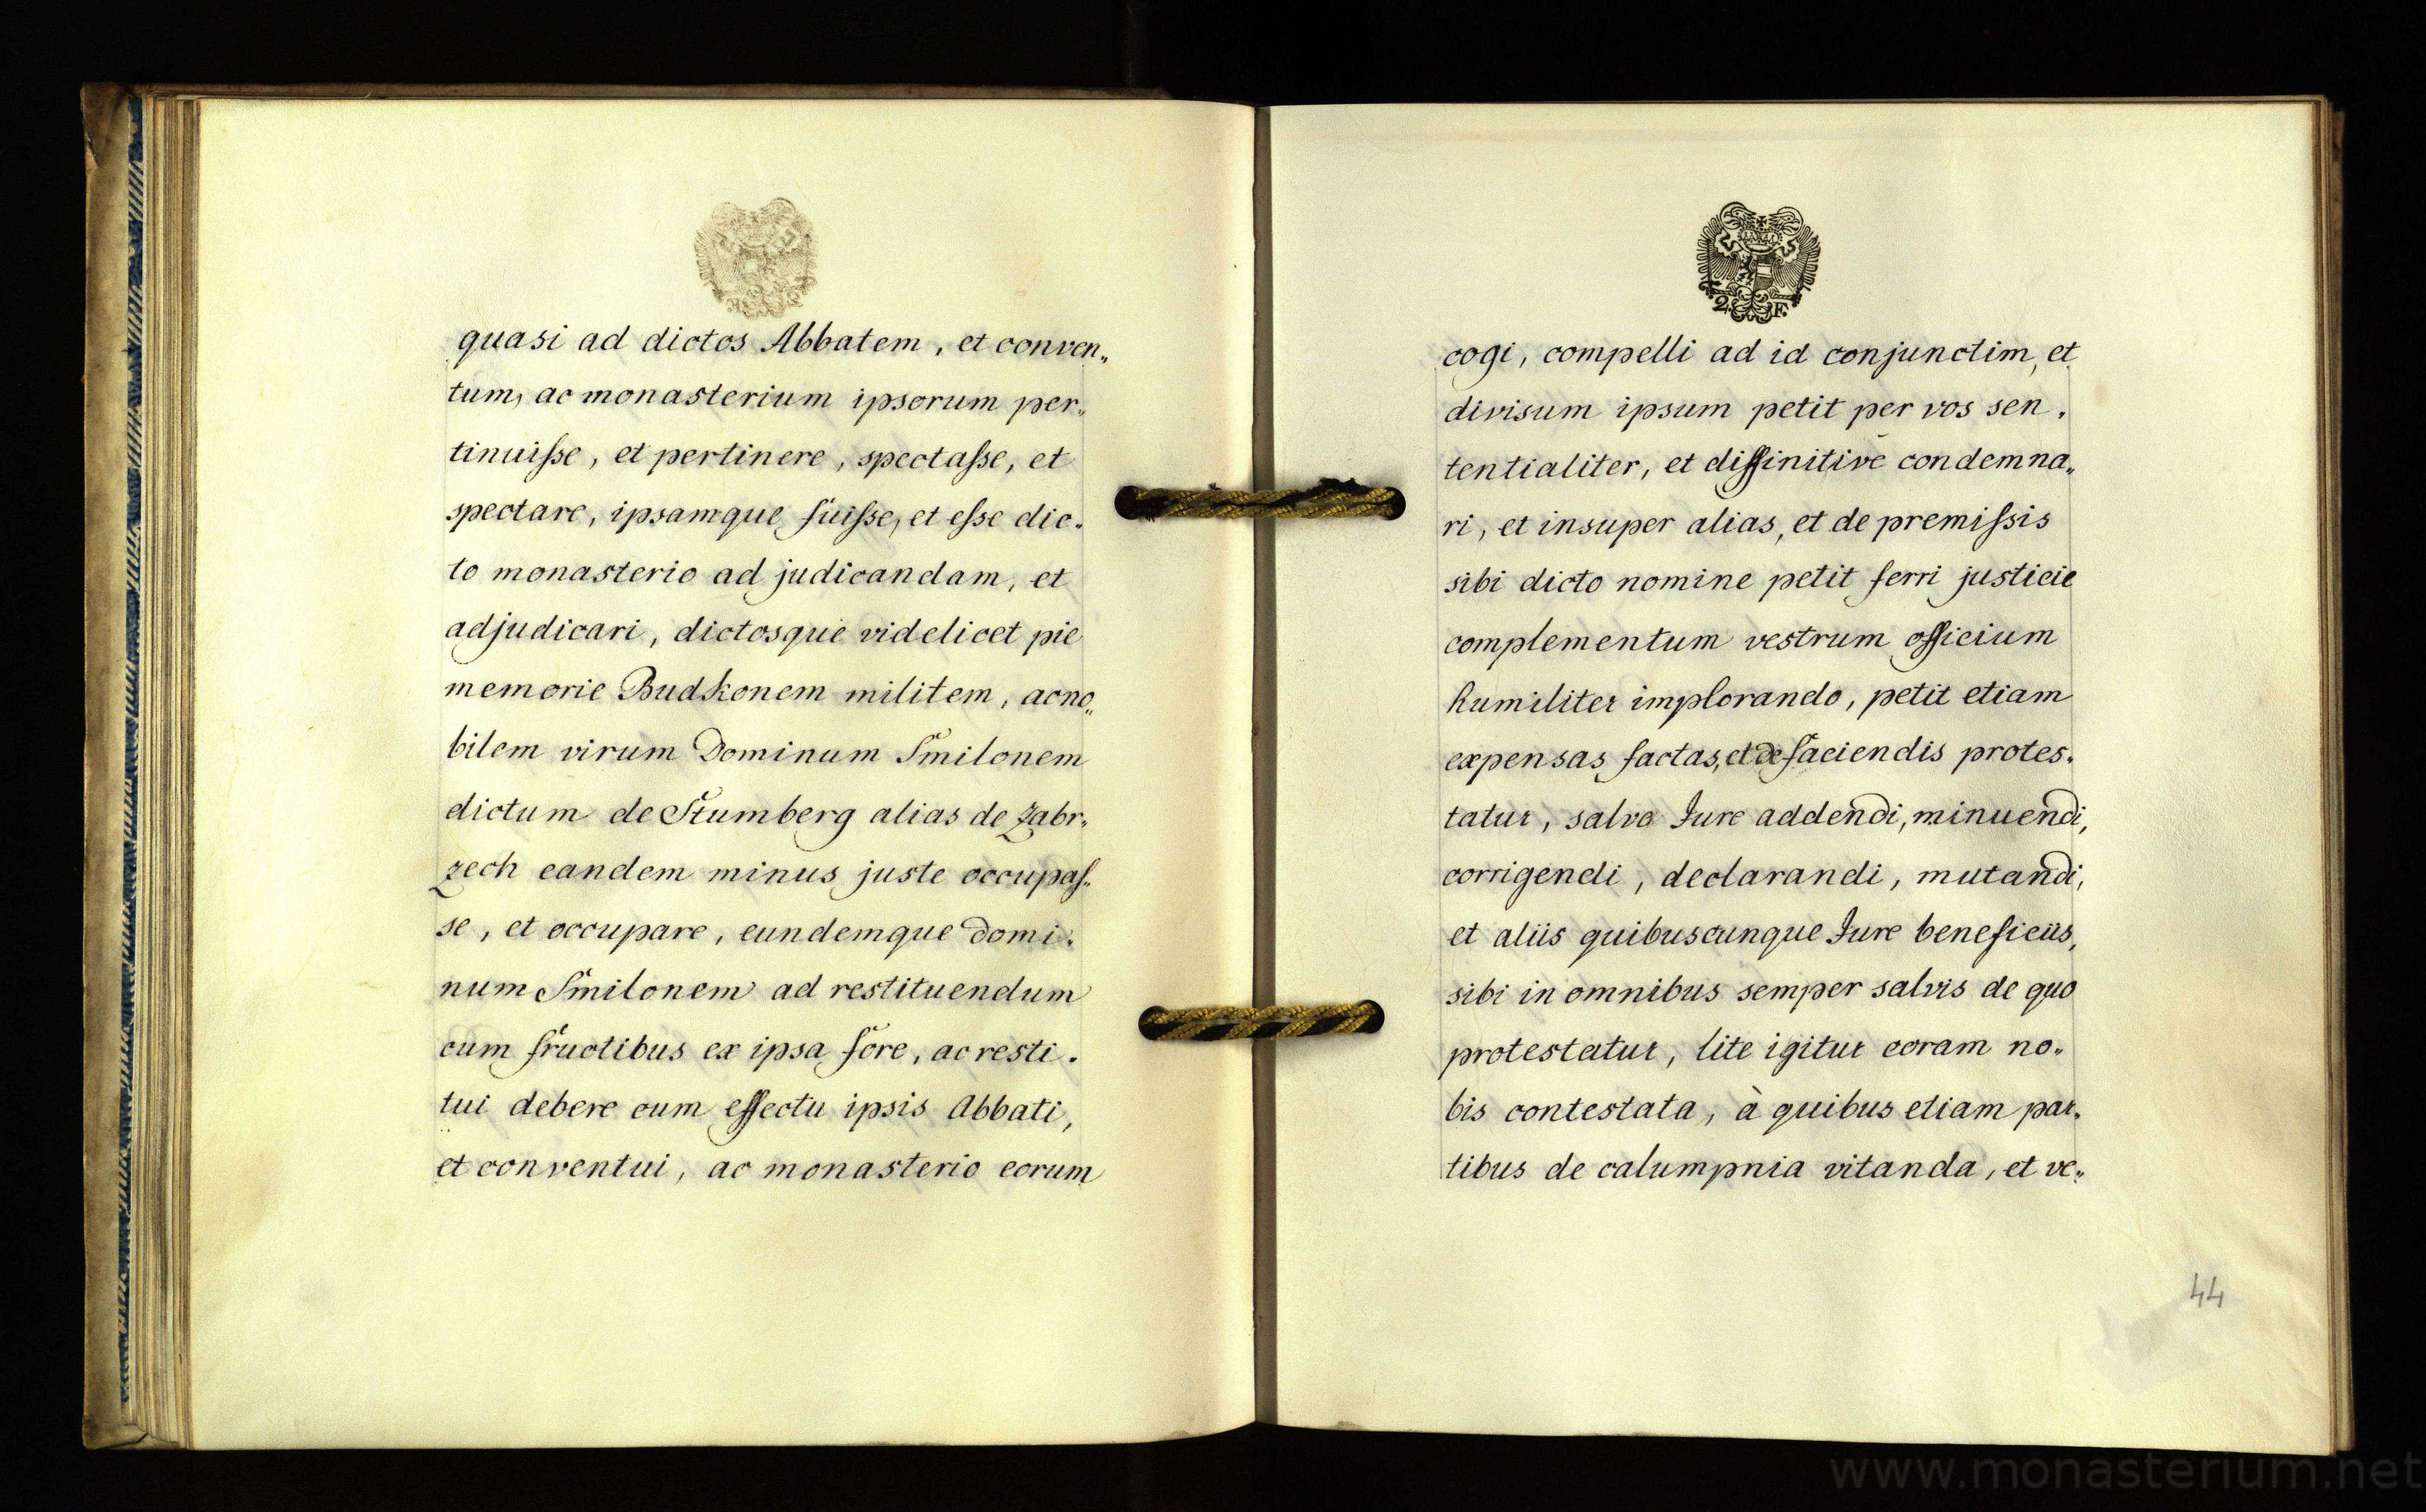 quasi ad dictos Abbatem, et conven„
tum, ac monasterium ipsorum per„
tinuiſse, et pertinere, spectaſse, et
spectare, ipsamque fuiſse, et eſse dic„
to monasterio ad judicandam, et
adjudicari, dictosque videlicet pie
memorie Budkonem militem, ac no„
bilem virum Dominum Smilonem
dictum de Stumberg alias de Zabr„
zech eandem minus juste occupaſ„
se, et occupare, eundemque domi„
num Smilonem ad restituendum
cum fructibus ex ipsa fore, ac resti„
tui debere cum effectu ipsis Abbati,
et conventui, ac monasterio eorum
2. F.
cogi, compelli ad id conjunctim, et
divisum ipsum petit per vos sen„
tentialiter, et diffinitive condemna„
ri, et insuper alias, et de premiſsis
sibi dicto nomine petit ferri justicie
complementum vestrum officium
humiliter implorando, petit etiam
expensas factas, et de faciendis protes„
tatur, salvo Jure addendi, minuendi,
corrigendi, declarandi, mutandi,
et aliis quibuscunque Jure beneficiis,
sibi in omnibus semper salvis de quo
protestatur, lite igitur coram no„
bis contestata, à quibus etiam par„
tibus de calumpnia vitanda, et ve„
44
www.monasterium.net